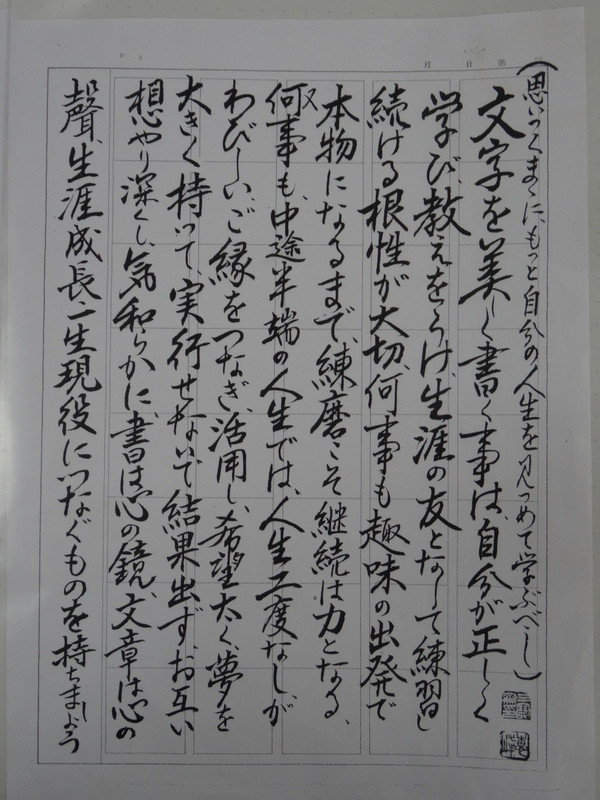 月 日 第
(思いつくまゝに、もっと自分の人生を見つめて学ぶべし)
文字を美しく書く事は自分が正しく
学び教えをうけ、生涯の友となして練習し
続ける根性が大切、何事も趣味の出発で
本物になるまで、練磨こそ継続は力となる、
又何事も、中途半端の人生では、人生二度なしが
わびしい、ご縁をつなぎ、活用し、希望太く、夢を
大きく持って、実行せないで結果出ず、お互い
想やり深くし、気和らかに、書は心の鏡、文章は心の
聲、生涯成長一生現役につなぐものを持ちましょう